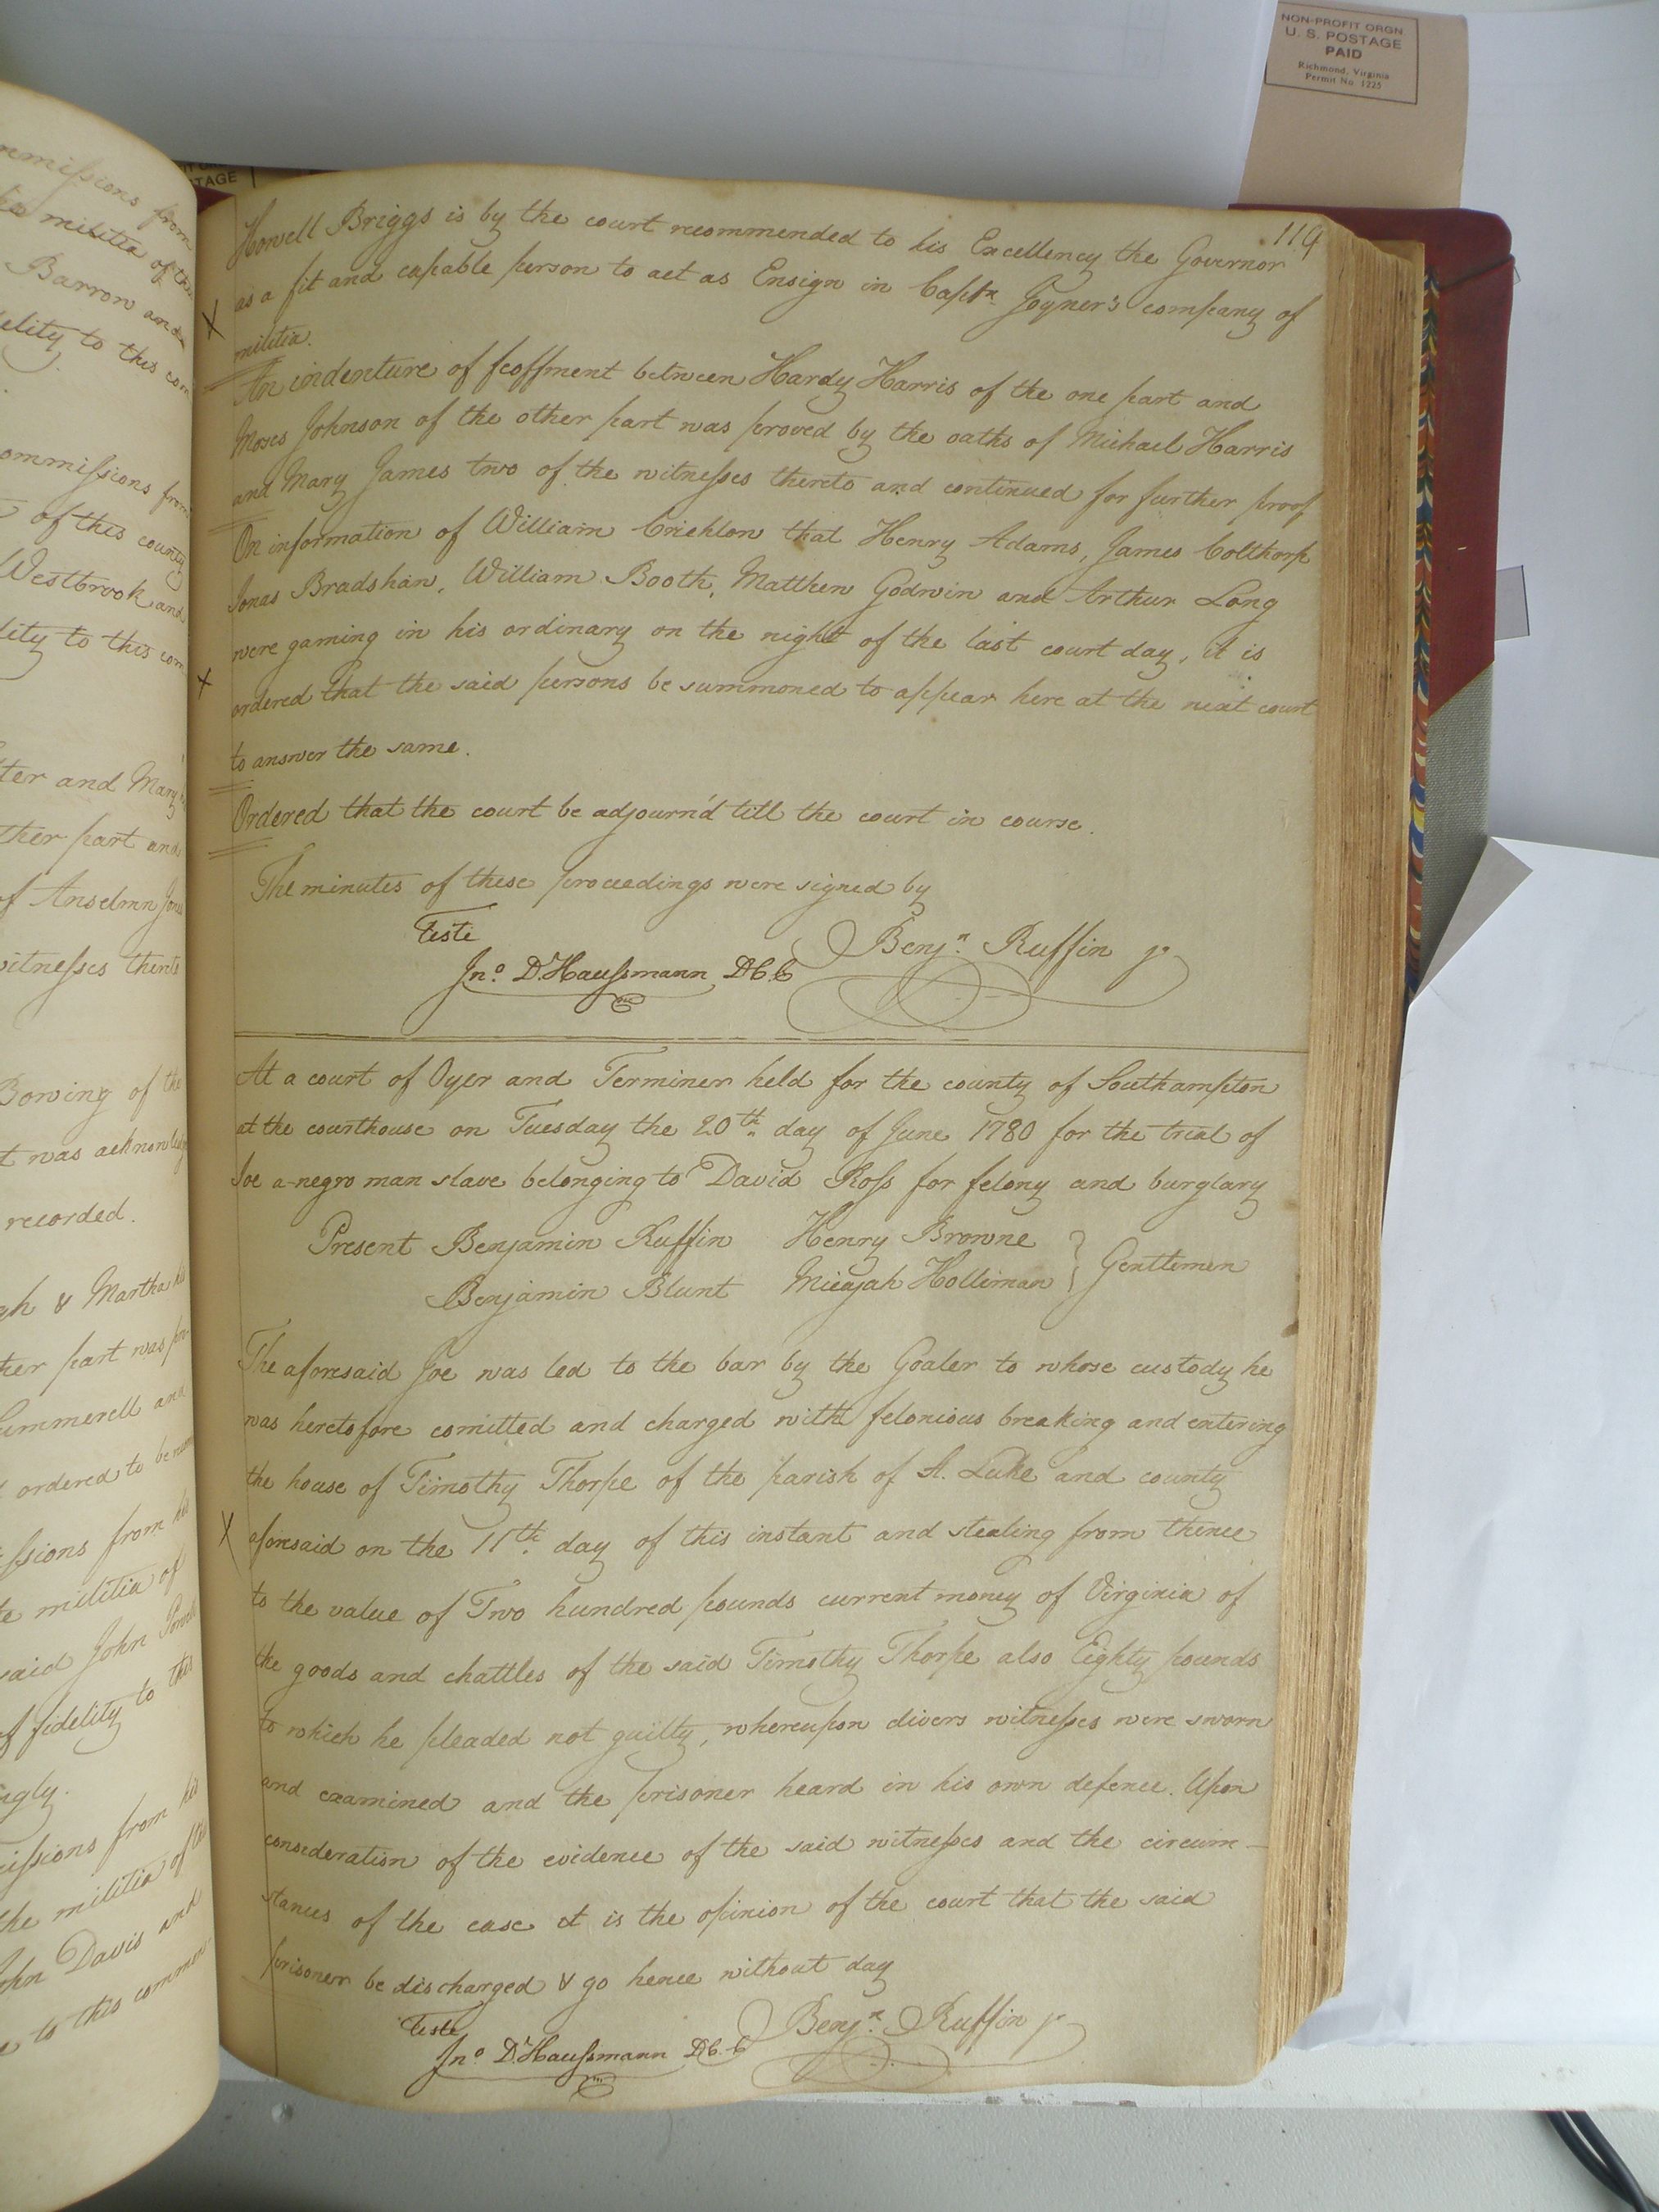 NON-PROFIT ORGN
U. S. POSTAGE
PAID
Richmond, Virginia
Permit No. 1225
TAGE
119
Howell Briggs is by the court recommended to his Excellency the Governor
as a fit and capable person to act as Ensign in Captn Joyner's company of
militia.
An indenture of feoffment between Hardy Harris of the one part and
Moses Johnson of the other part was proved by the oaths of Michael Harris
and Mary James two of the witnesses thereto and continued for further proof
On information of William Crichlon that Henry Adams, James Colthorp
Jonas Bradshaw, William Booth, Matthew Godwin and Arthur Long
were gaming in his ordinary on the night of the last court day, it is
ordered that the said persons be summoned to appear here at the next court
to answer the same.
Ordered that the court be adjourn'd till the court in course.
The minutes of these proceedings were signed by
Teste
Benjn Ruffin jr
Jno. D. Haussmann D.C.C
At a court of Oyer and Terminer held for the county of Southampton
at the courthouse on Tuesday the 20th day of June 1780 for the trial of
Joe a negro man slave belonging to David Ross for felony and burglary
Present Benjamin Ruffin Henry Browne
Benjamin Blunt Micajah Holliman } Gentlemen
The aforesaid Joe was led to the bar by the Goaler to whose custody he
was heretofore comitted and charged with felonious breaking and entering
the house of Timothy Thorpe of the parish of St. Luke and county
aforesaid on the 11th day of this instant and stealing from thence
to the value of Two hundred pounds current money of Virginia of
the goods and chattles of the said Timothy Thorpe also Eighty pounds
to which he pleaded not guilty, whereupon divers witnesses were sworn
and examined and the prisoner heard in his own defence. Upon
consederation of the evidence of the said witnesses and the circum-
stances of the case it is the opinion of the court that the said
prisoner be discharged & go hence without day
Teste
Benjn Ruffin jr
Jno. D. Haussmann D.C.C
missions from
militia of the
Barron and
elity to this com
ommissions from
of this county
Westbrook and
lity to this com
ter and Mary
ther part and
of Anselmn Jones
witnesses thereto
Bowing of the
t was acknowledg
recorded.
gh & Martha his
ther part was pro
Summerell and
ordered to be
issions from his
militia of
said John
of fidelity to this
ngly.
missions from his
the militia of the
John Davis and
to this common